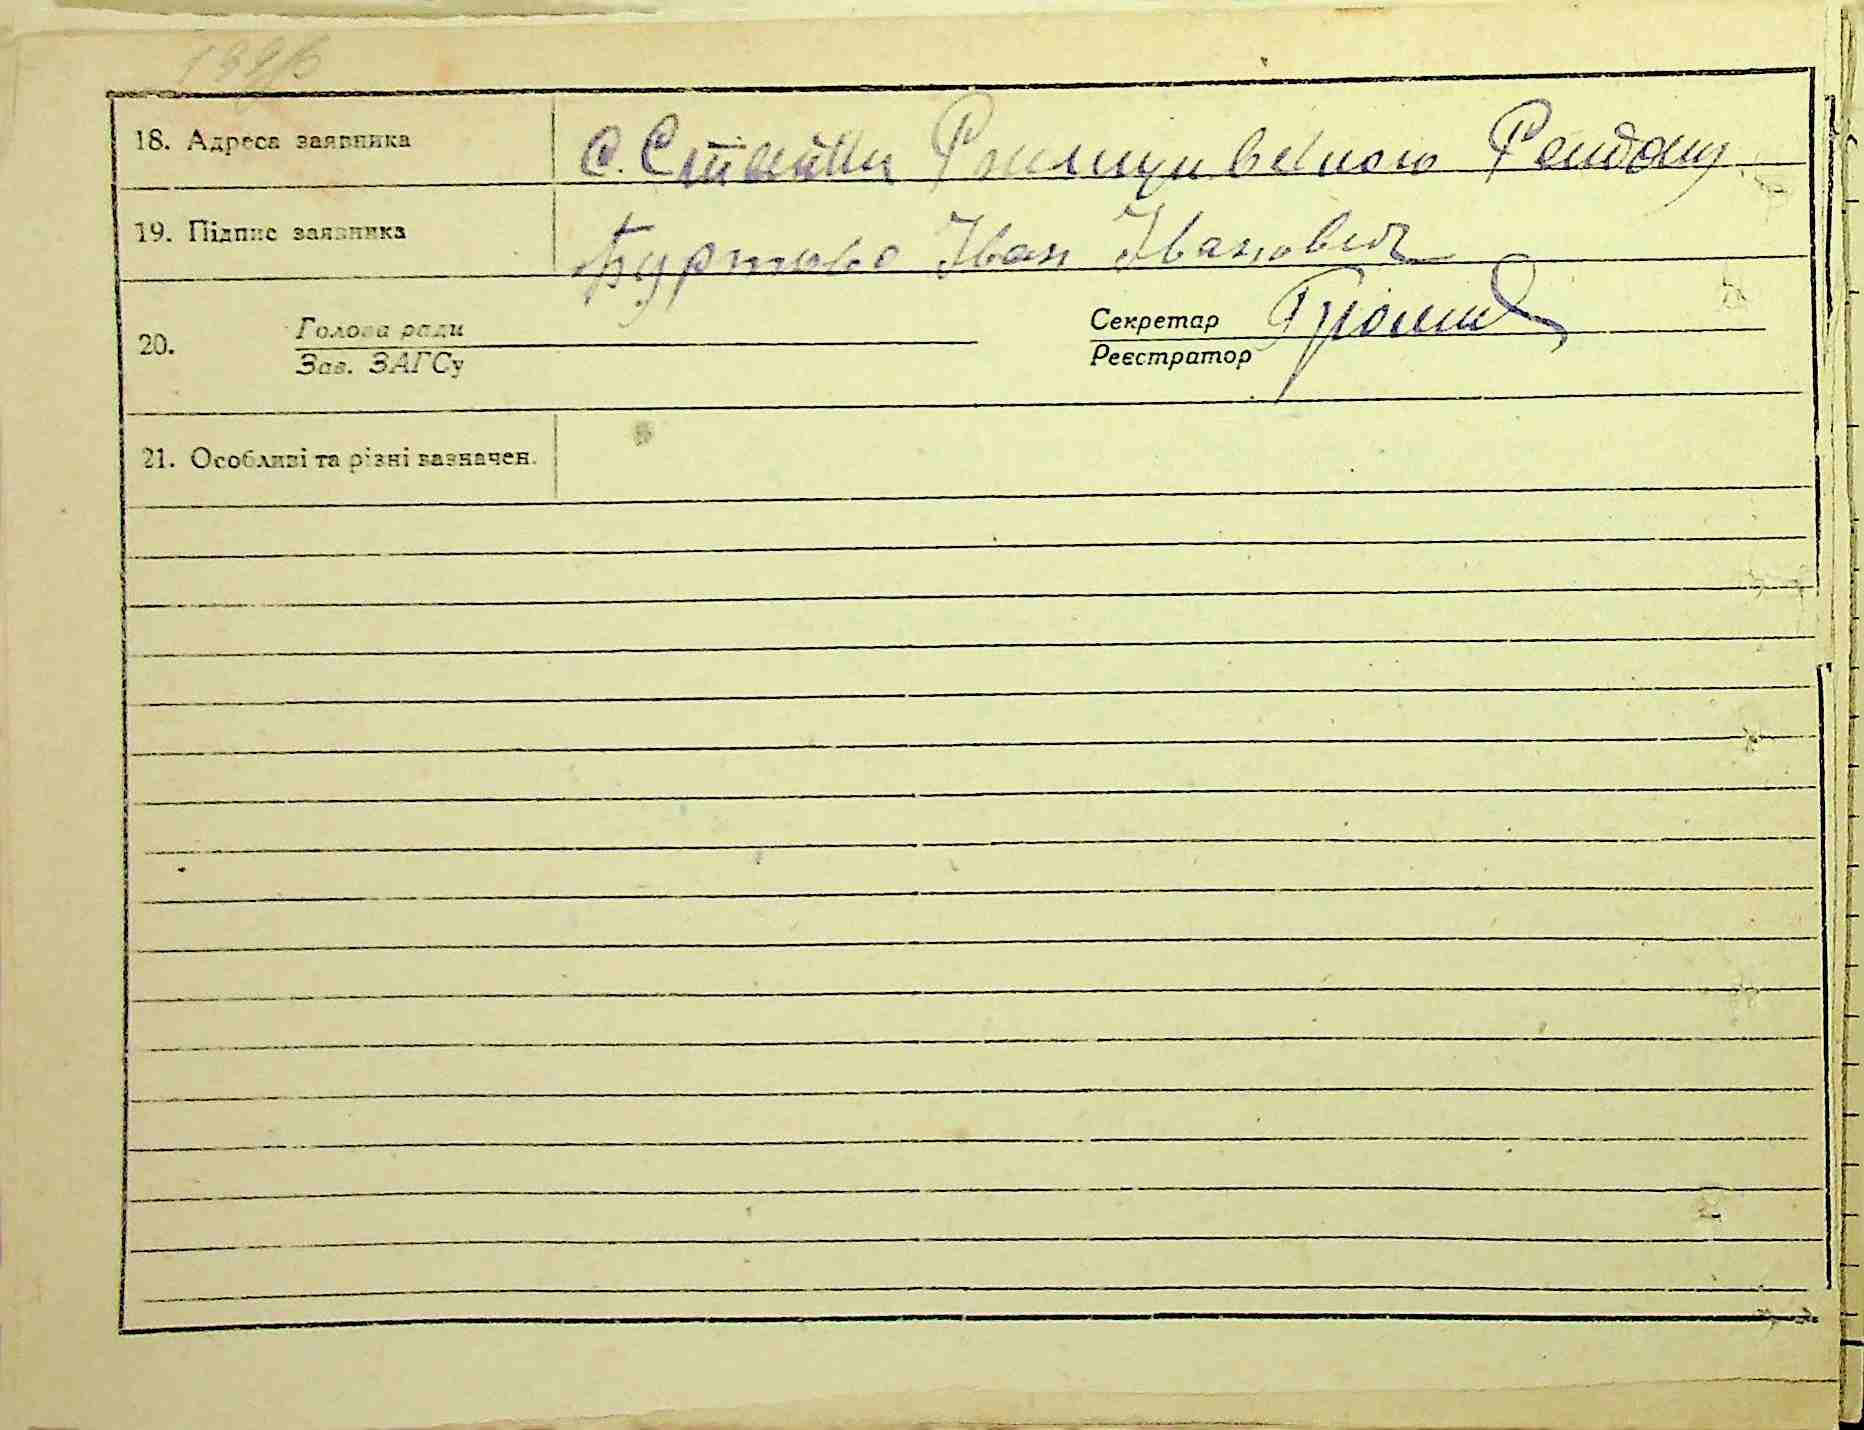 18. Адреса заявника с. Стайки Ржищивського Району
19. Підпис заявника Іван Іванович
20. Голова ради Секретар
Зав. ЗАГСу Реєстратор
21. Особливі та різні вазначен.